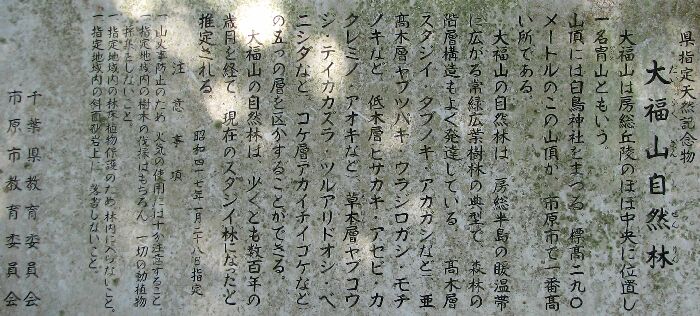 県指定天然記念物
大福山自然林
だいふくざんしぜんりん
大福山は房総丘陵のほぼ中央に位置し
一名冑山ともいう。
山頂には白鳥神社をまつる 標高二九〇
メートルのこの山頂が 市原市で一番高
い所である。
大福山の自然林は 房総半島の暖温帯
に広がる常緑広葉樹林の典型で 森林の
階層構造もよく発達している 高木層
スダジイ・タブノキ・アカガシなど 亜
高木層ヤブツバキ・ウラジロガシ・モチ
ノキなど 低木層ヒサカキ・アセビ・カ
クレミノ・アオキなど 草本層ヤブコウ
ジ・テイカカズラ・ツルアリドオシ・ベ
ニシダなど コケ層アカイチイゴケなど
の五つの層を区分することができる。
大福山の自然林は 少くとも数百年の
歳月を経て 現在のスダジイ林になったと
推定される。
昭和四十七年一月二十八日指定
注意事項
一 山火事防止のため 火気の使用には十分注意すること
一 指定地域内の樹木の伐採はもちろん 一切の動植物
採集をしないこと。
一 指定地域内の林床植物保護のため 林内に入らないこと。
一 指定地域内の斜面砂岩上に 落書しないこと。
千葉県教育委員会
市原市教育委員会